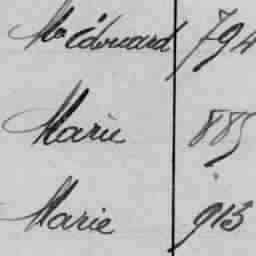 Mce Edouard 794
Marie 885
Marie 913